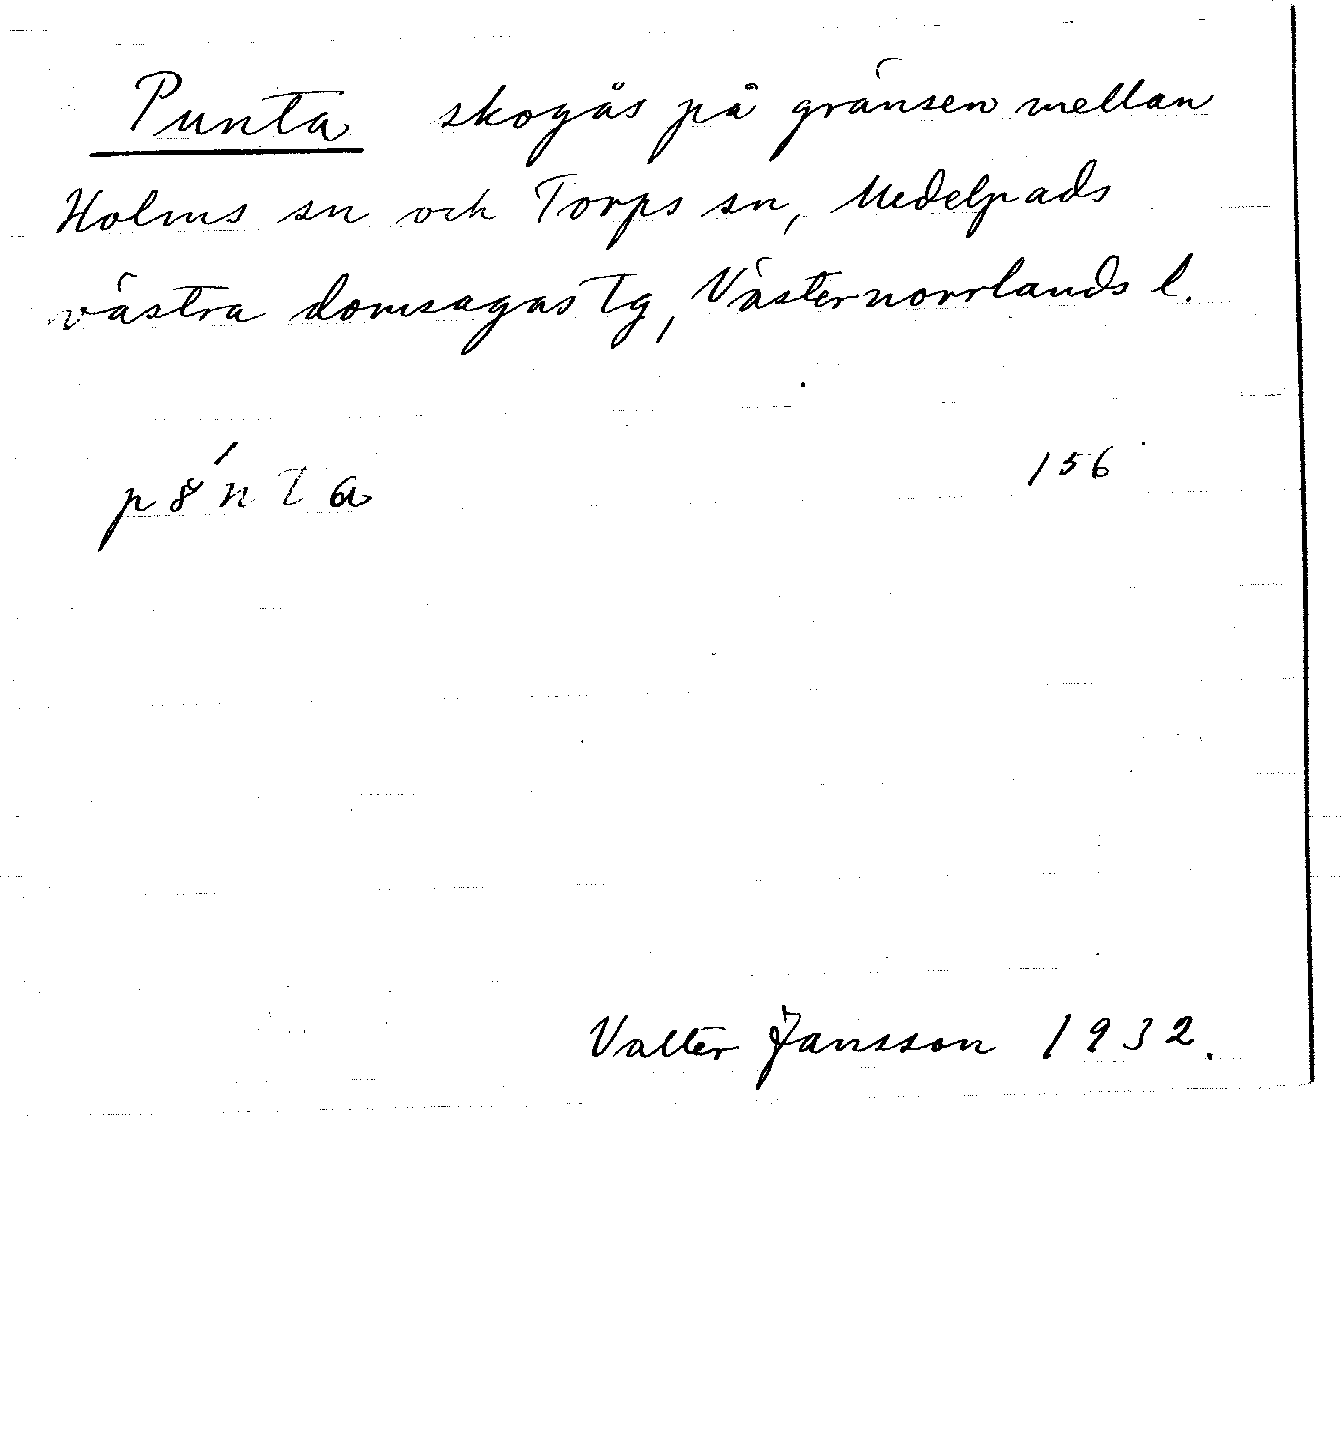 Punta skogås på gränsen mellan
Holms sn och Torps sn, Medelpads
västra domsagas tg, Västernorrlands l.
p8́nta 156
Valter Jansson 1932.